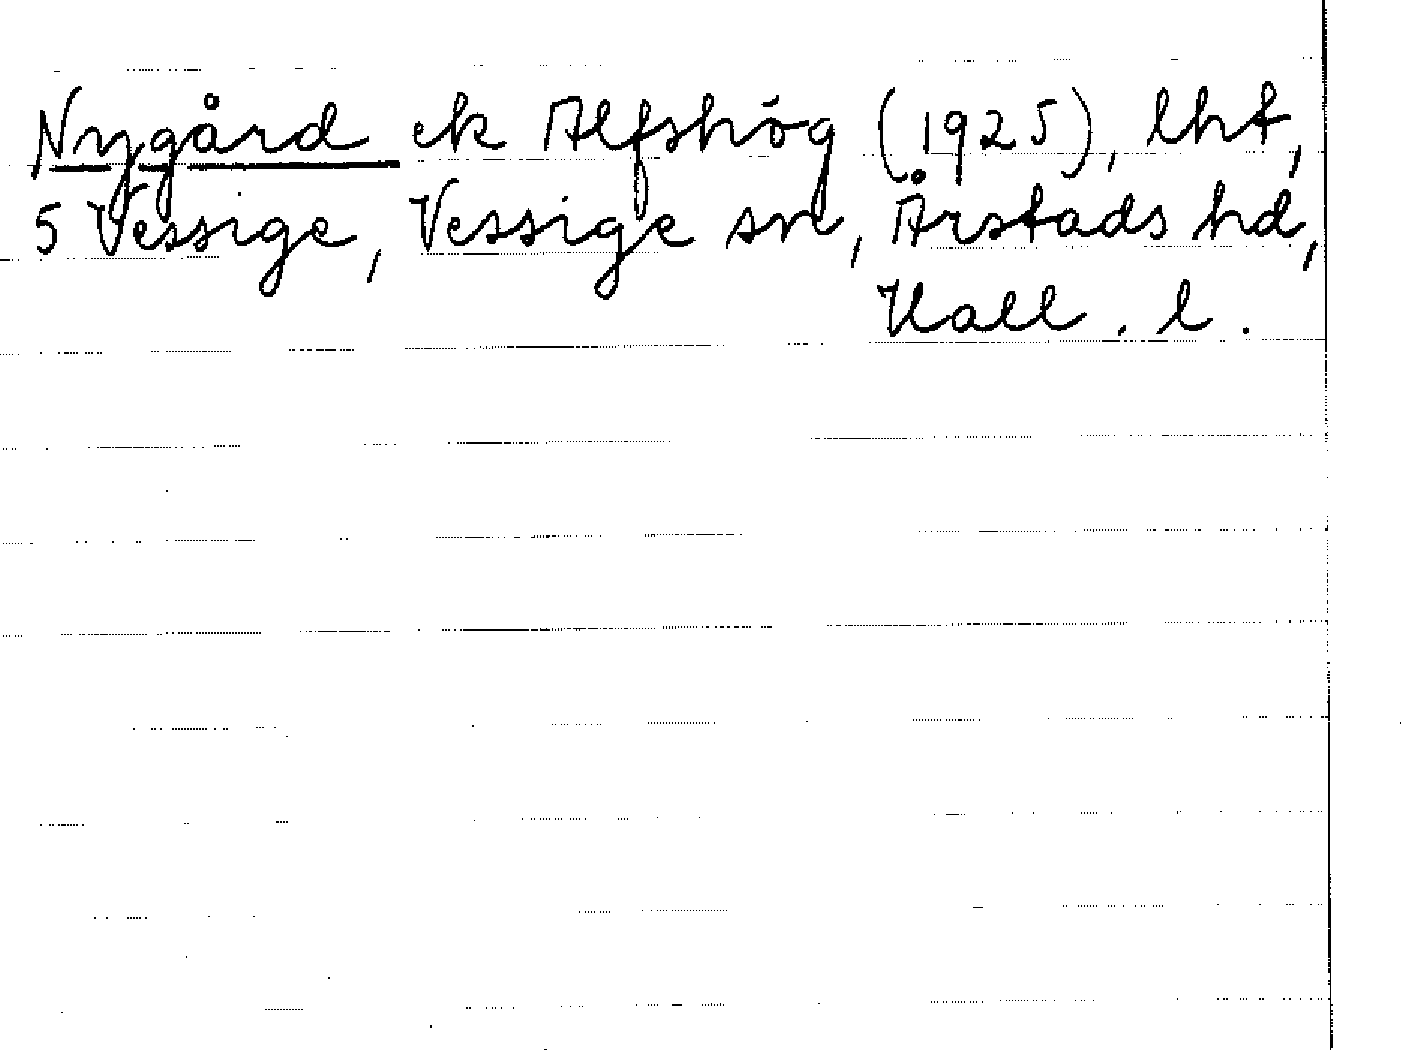 Nygård ek Alfshög (1925), lht,
5 Vessige, Vessige sn, Årstads hd,
Hall. l.